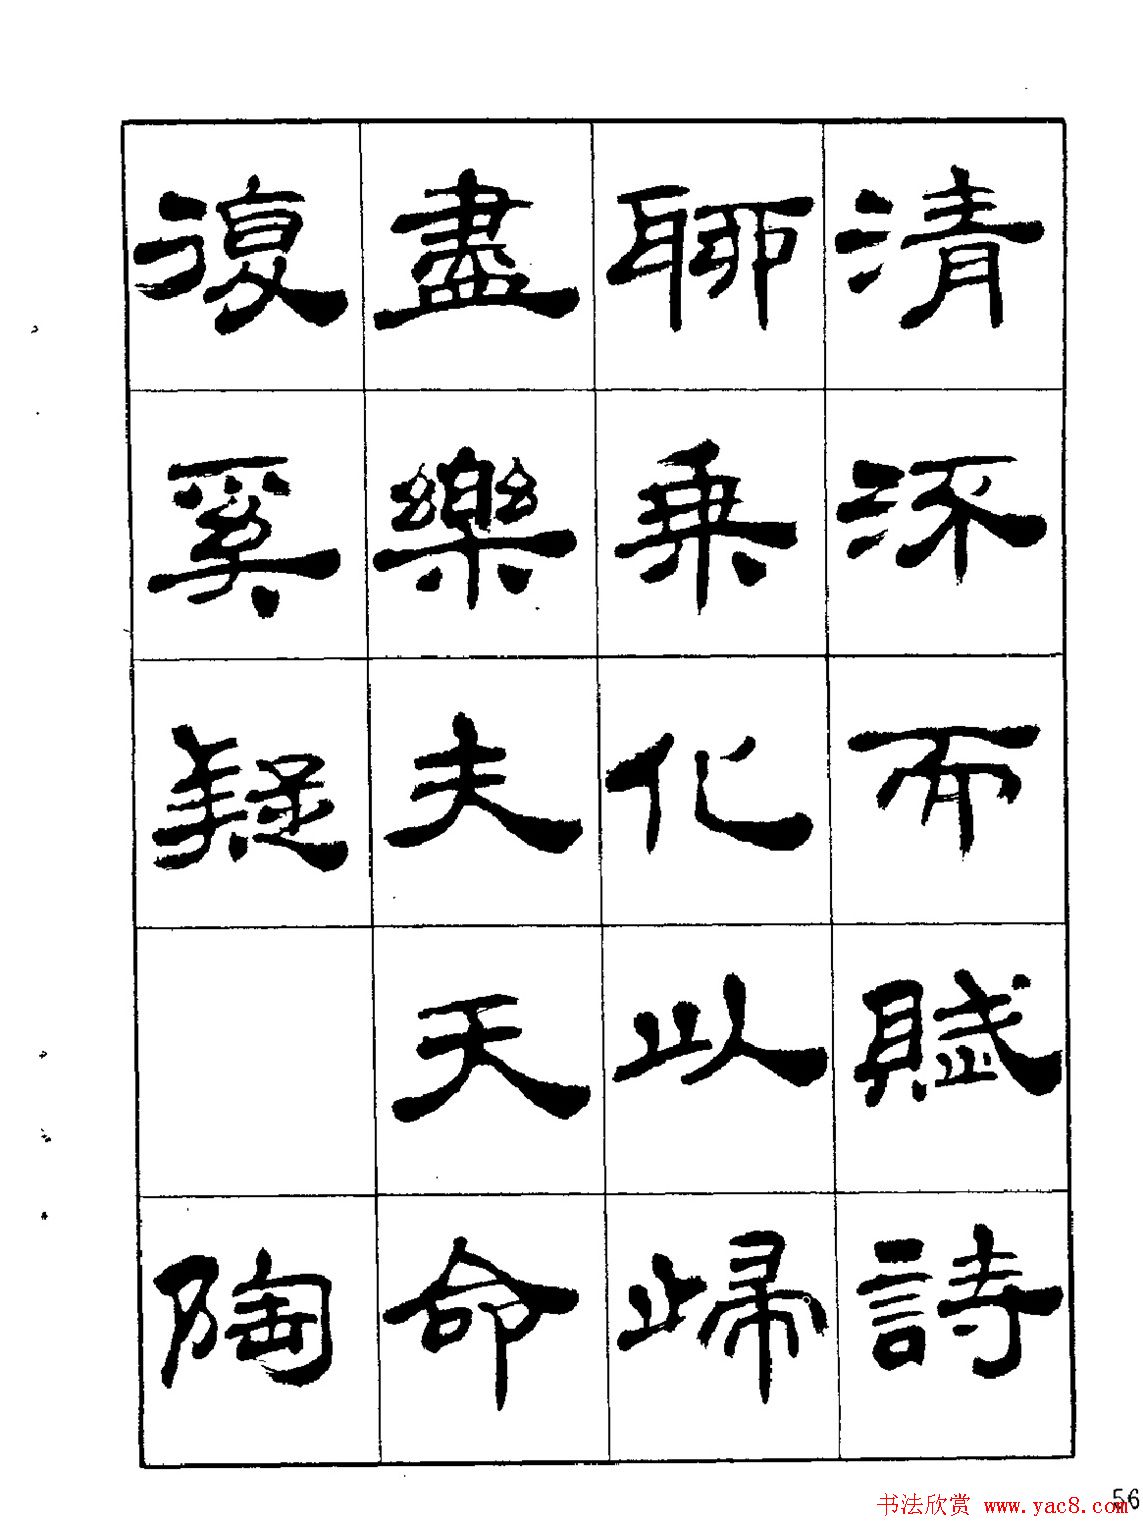 清流而賦詩
聊乘化以歸
盡樂夫天命
復奚疑 陶
56
书法欣赏 www.yac8.com